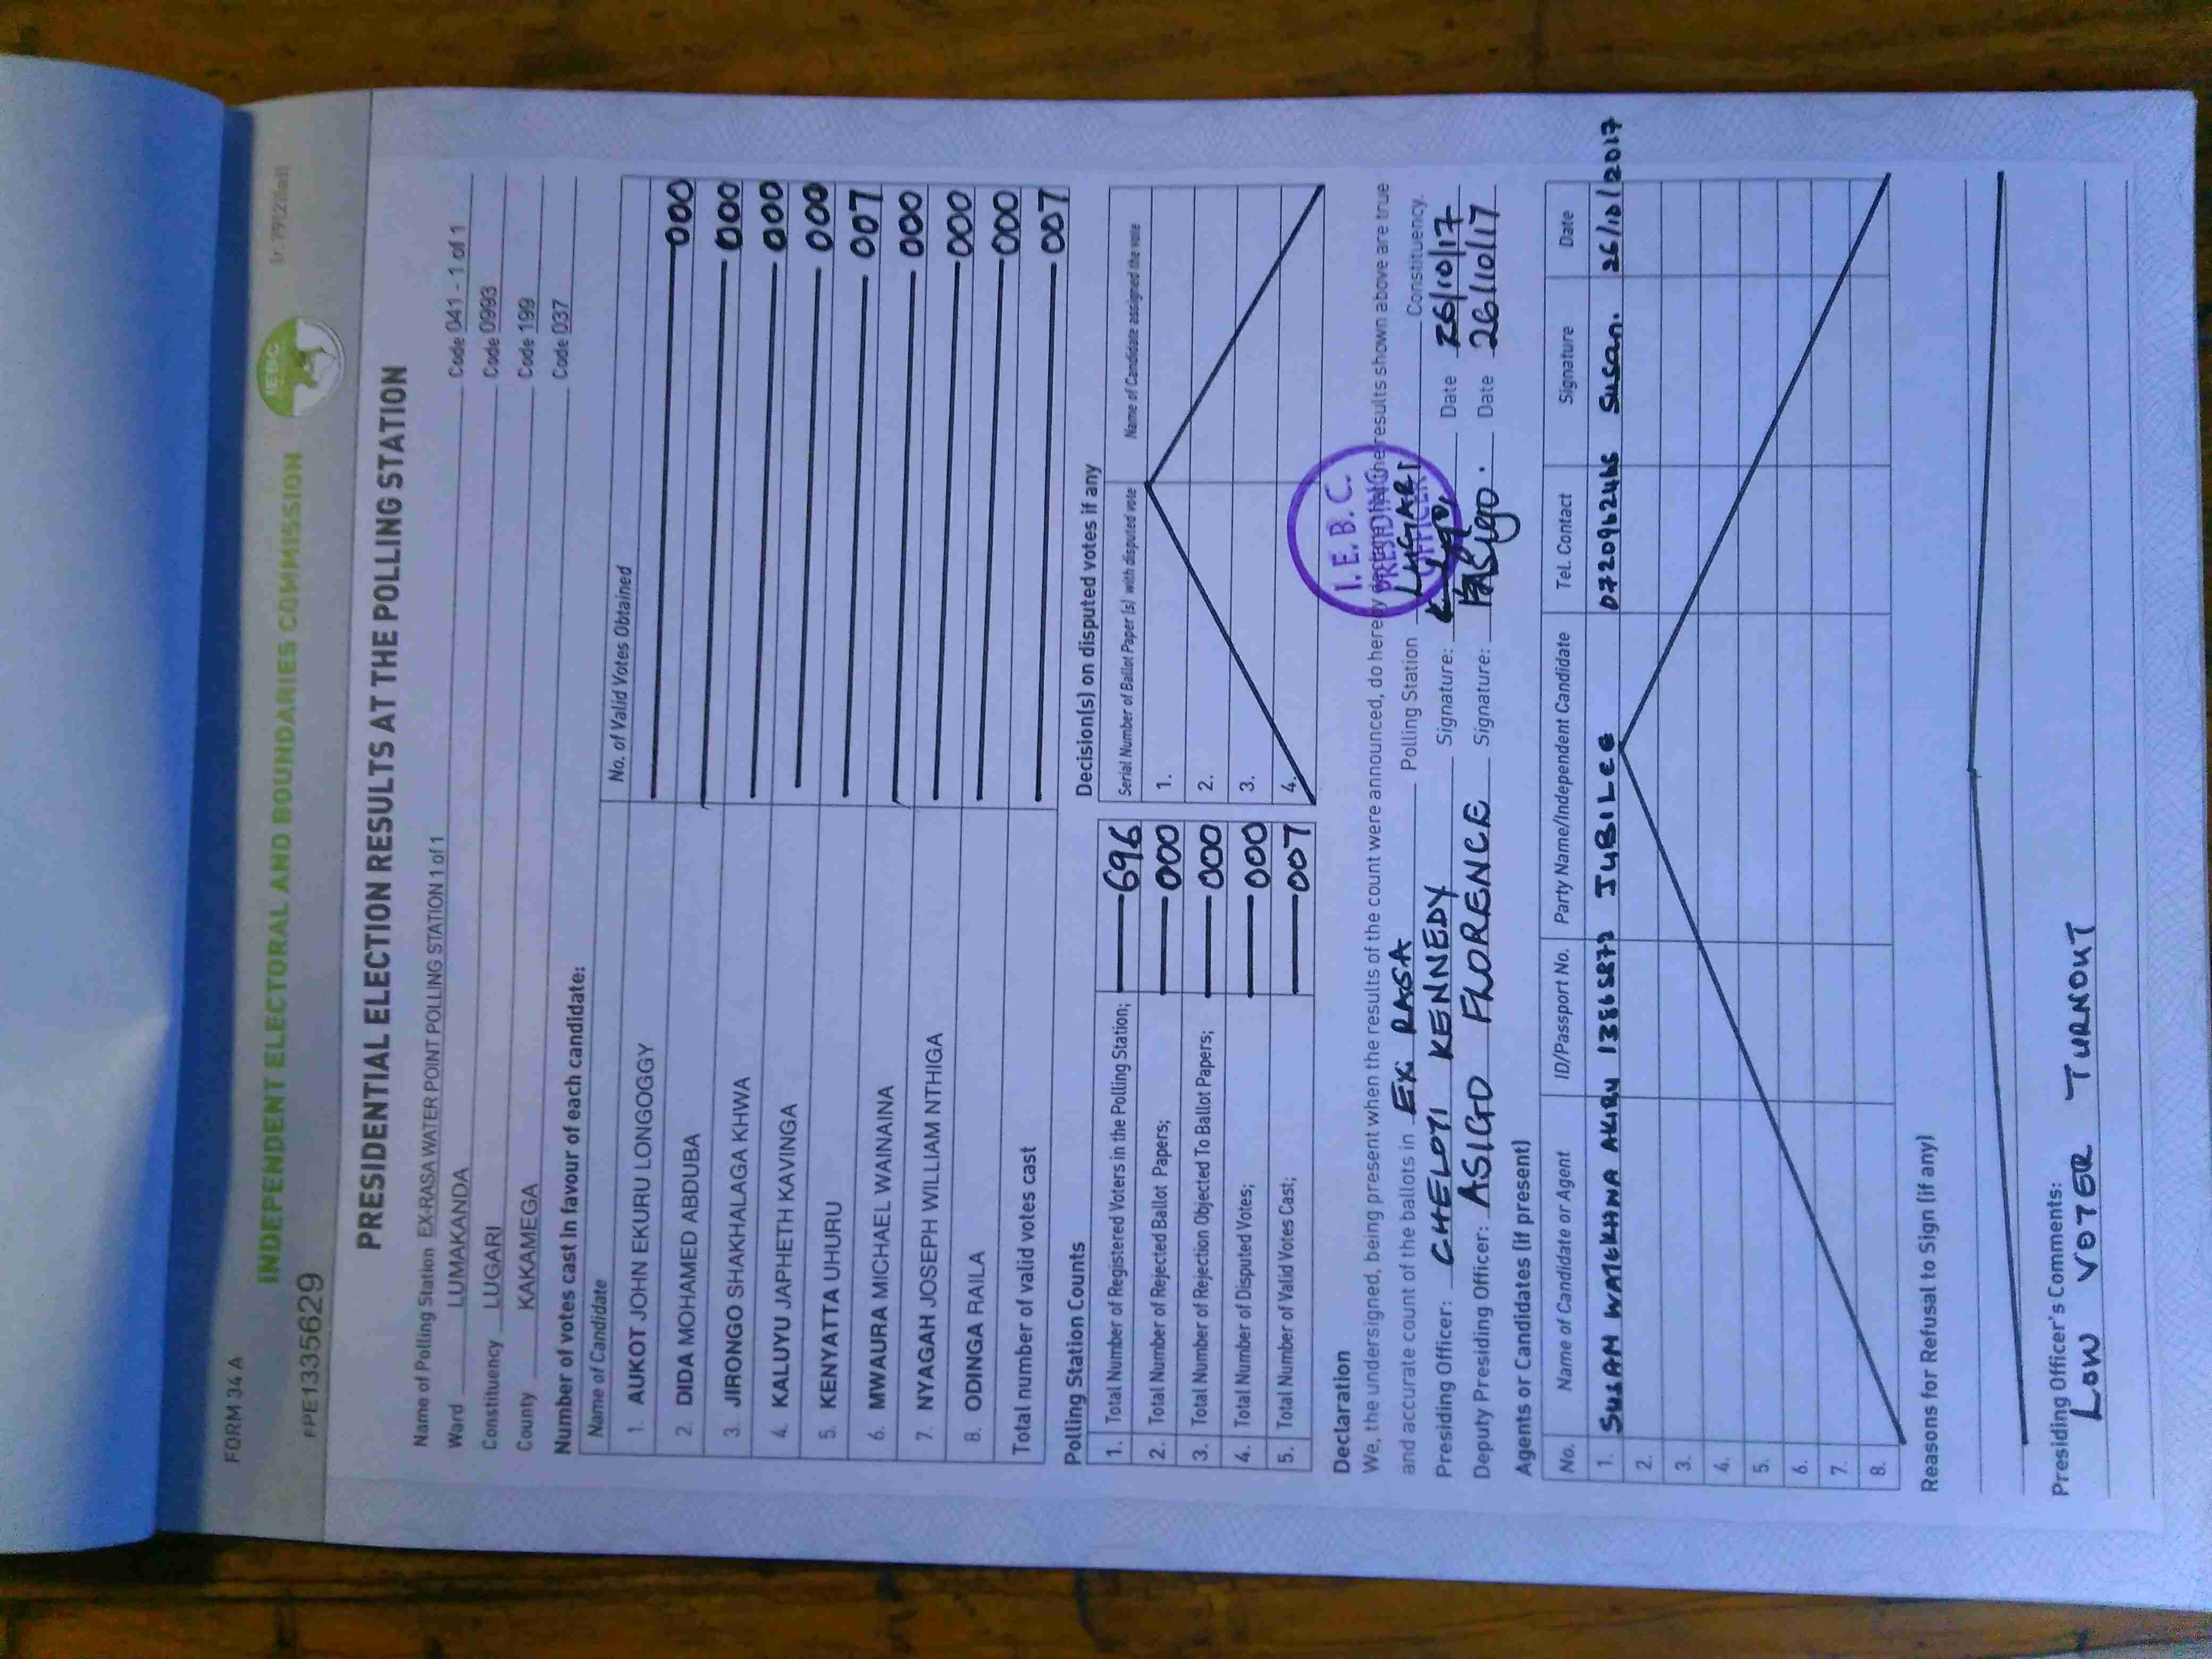 FORM 34A
INDEPENDENT ELECTORAL AND BOUNDARIES COMMISSION
IEBC
(r. 79(2)(a))
PPE1335629
PRESIDENTIAL ELECTION RESULTS AT THE POLLING STATION
Name of Polling Station EX-RASA WATER POINT POLLING STATION 1 of 1 Code 041 - 1 of 1
Ward LUMAKANDA Code 0993
Constituency LUGARI Code 199
County KAKAMEGA Code 037
Number of votes cast in favour of each candidate:
Name of Candidate No. of Valid Votes Obtained
1. AUKOT JOHN EKURU LONGOGGY 000
2. DIDA MOHAMED ABDUBA 000
3. JIRONGO SHAKHALAGA KHWA 000
4. KALUYU JAPHETH KAVINGA 000
5. KENYATTA UHURU 007
6. MWAURA MICHAEL WAINAINA 000
7. NYAGAH JOSEPH WILLIAM NTHIGA 000
8. ODINGA RAILA 000
Total number of valid votes cast 007
Polling Station Counts
1. Total Number of Registered Voters in the Polling Station; 696
2. Total Number of Rejected Ballot Papers; 000
3. Total Number of Rejection Objected To Ballot Papers; 000
4. Total Number of Disputed Votes; 000
5. Total Number of Valid Votes Cast; 007
Decision(s) on disputed votes if any
Serial Number of Ballot Paper (s) with disputed vote Name of Candidate assigned the vote
1.
2.
3.
4.
Declaration
We, the undersigned, being present when the results of the count were announced, do hereby declare that the results shown above are true
and accurate count of the ballots in EX RASA Polling Station LUGARI Constituency.
I. E. B. C.
PRESIDING
OFFICER
Presiding Officer: CHELOTI KENNEDY Signature: Date 26/10/17
Deputy Presiding Officer: ASIGO FLORENCE Signature: Asigo. Date 26/10/17
Agents or Candidates (if present)
No. Name of Candidate or Agent ID/Passport No. Party Name/Independent Candidate Tel. Contact Signature Date
1. SUSAN JUBILEE Susan. 26/10/2017
2.
3.
4.
5.
6.
7.
8.
Reasons for Refusal to Sign (if any)
Presiding Officer's Comments:
LOW VOTER TURNOUT